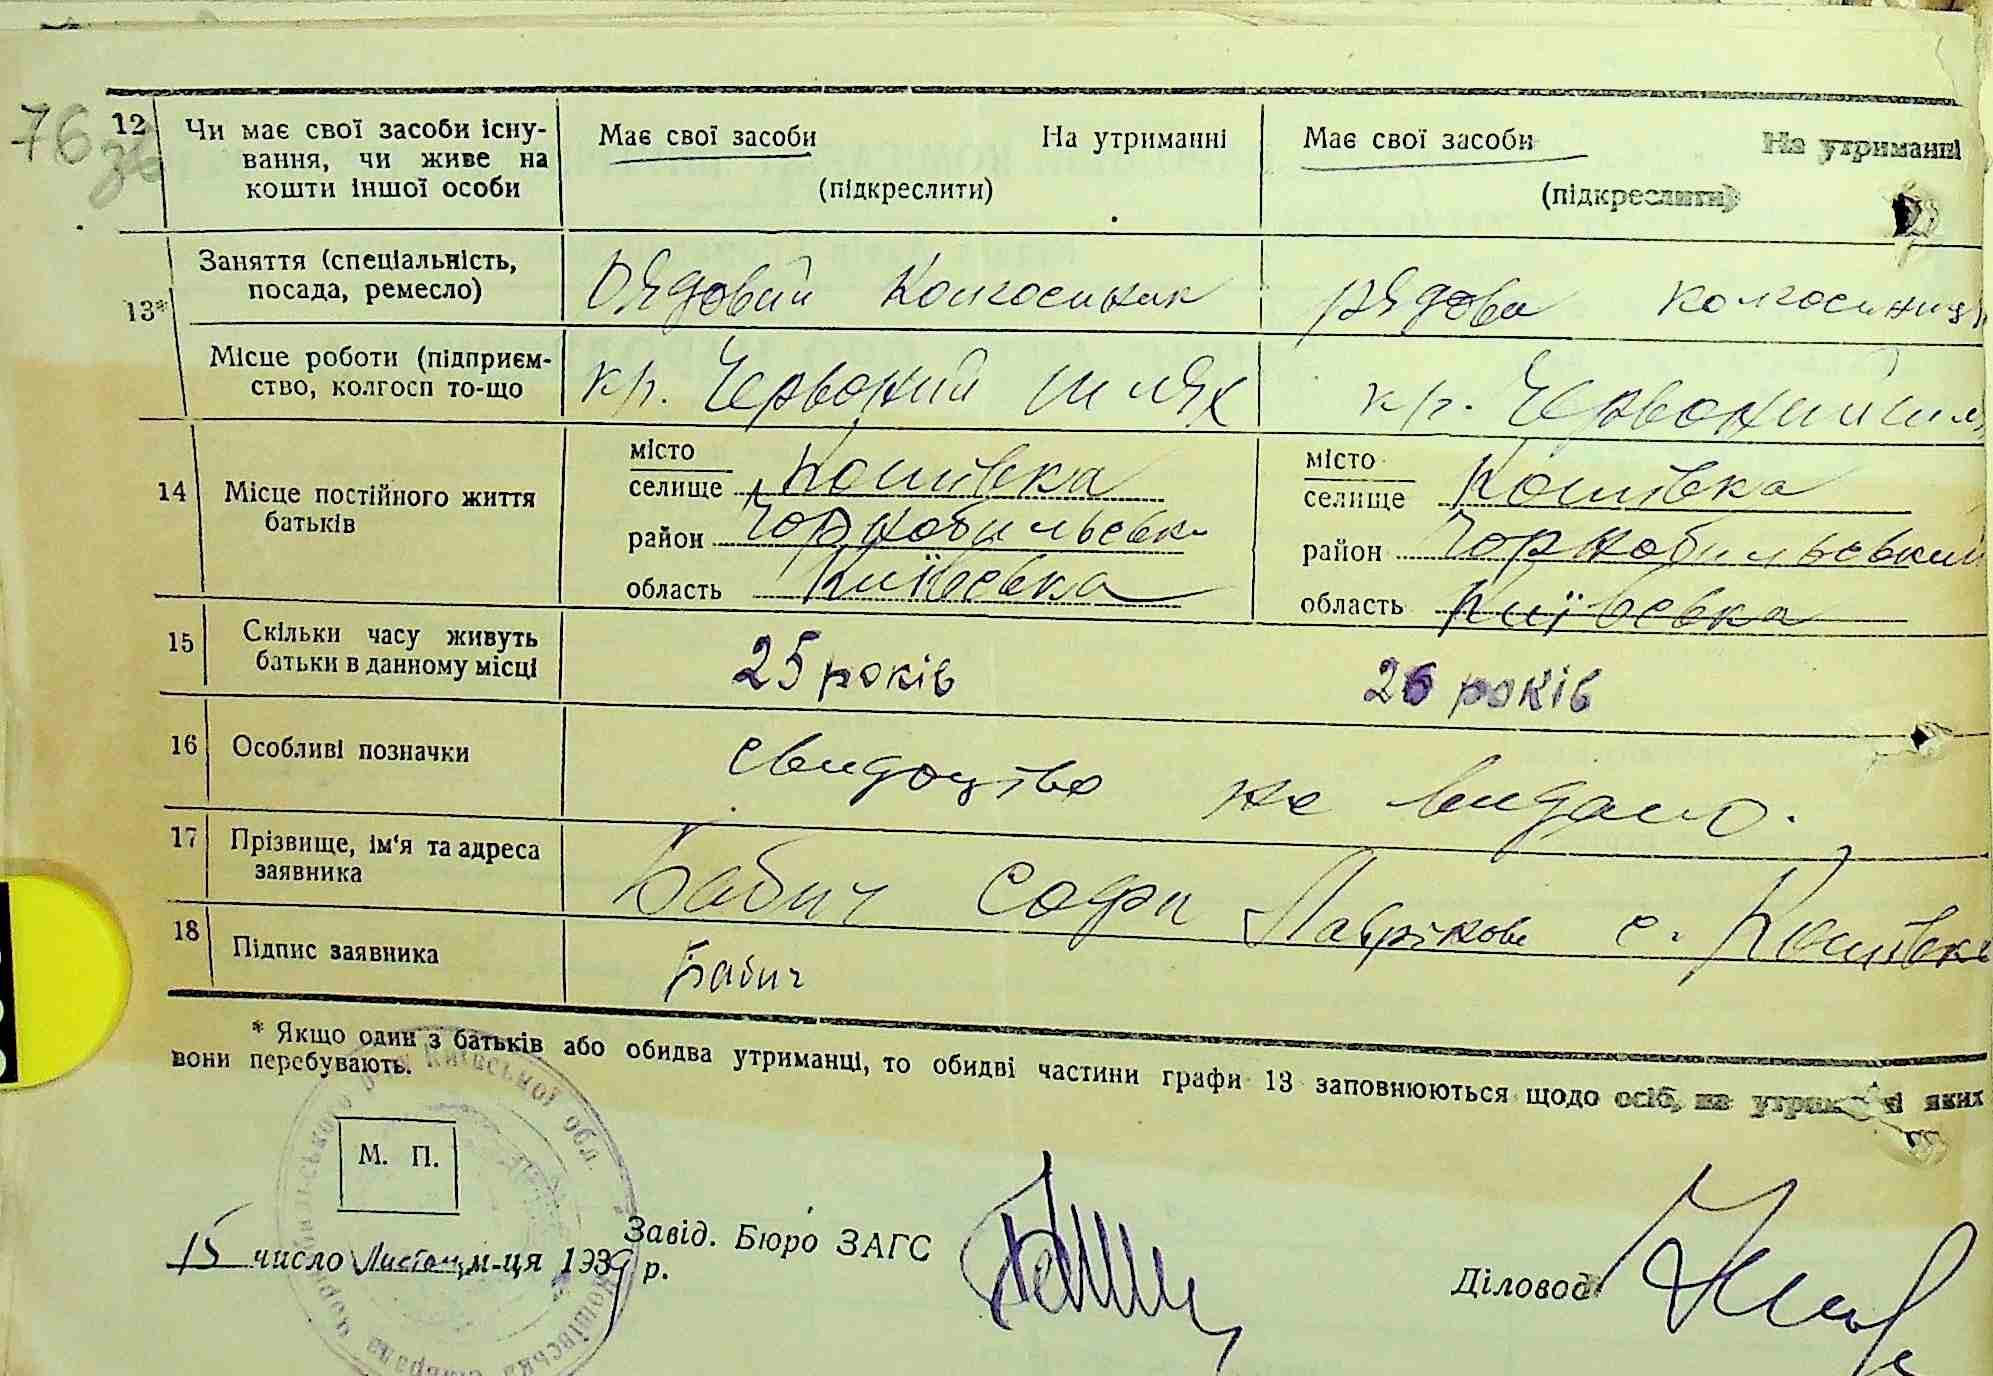 76 зв
12 Чи має свої засоби існу- Має свої засоби На утриманні Має свої засоби На утриманні
вання, чи живе на
кошти іншої особи (підкреслити) (підкреслити)
13* Заняття (спеціальність, Рядовий Колгоспник рядова колгоспниця
посада, ремесло)
Місце роботи (підприєм- кр. Червоний шлях кр. Червоний шля
ство, колгосп то-що
14 Місце постійного життя місто місто
батьків селище Кошівка селище Кошівка
район Чорнобильськ район Чорнобильський
область Київська область Київська
15 Скільки часу живуть 25 років 26 років
батьки в данному місці
16 Особливі позначки свидоцтво не видано.
17 Прізвище, ім'я та адреса Бабич Софи Лавріков с. Кошівка
заявника
18 Підпис заявника Бабич
* Якщо один з батьків або обидва утриманці, то обидві частини графи 13 заповнюються щодо осіб, на утриманні яких
вони перебувають.
М. П.
Київської обл.
Кошівська сільрада
15 число Листопад м-ця 1939 р. Завід. Бюро ЗАГС Діловод